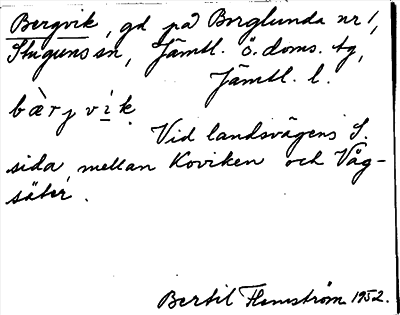 Bergvik, gd på Borglunda nr 1,
Stuguns sn, Jämtl. ö. doms. tg,
Jämtl. l.
bæ̀rjvìk.
Vid landsvägens S.
sida, mellan Koviken och Våg-
säter.
Bertil Flemström 1952.